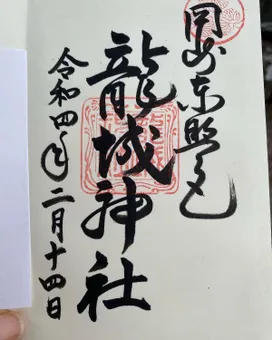 岡崎東照宮
龍城神社
令和四年二月十四日